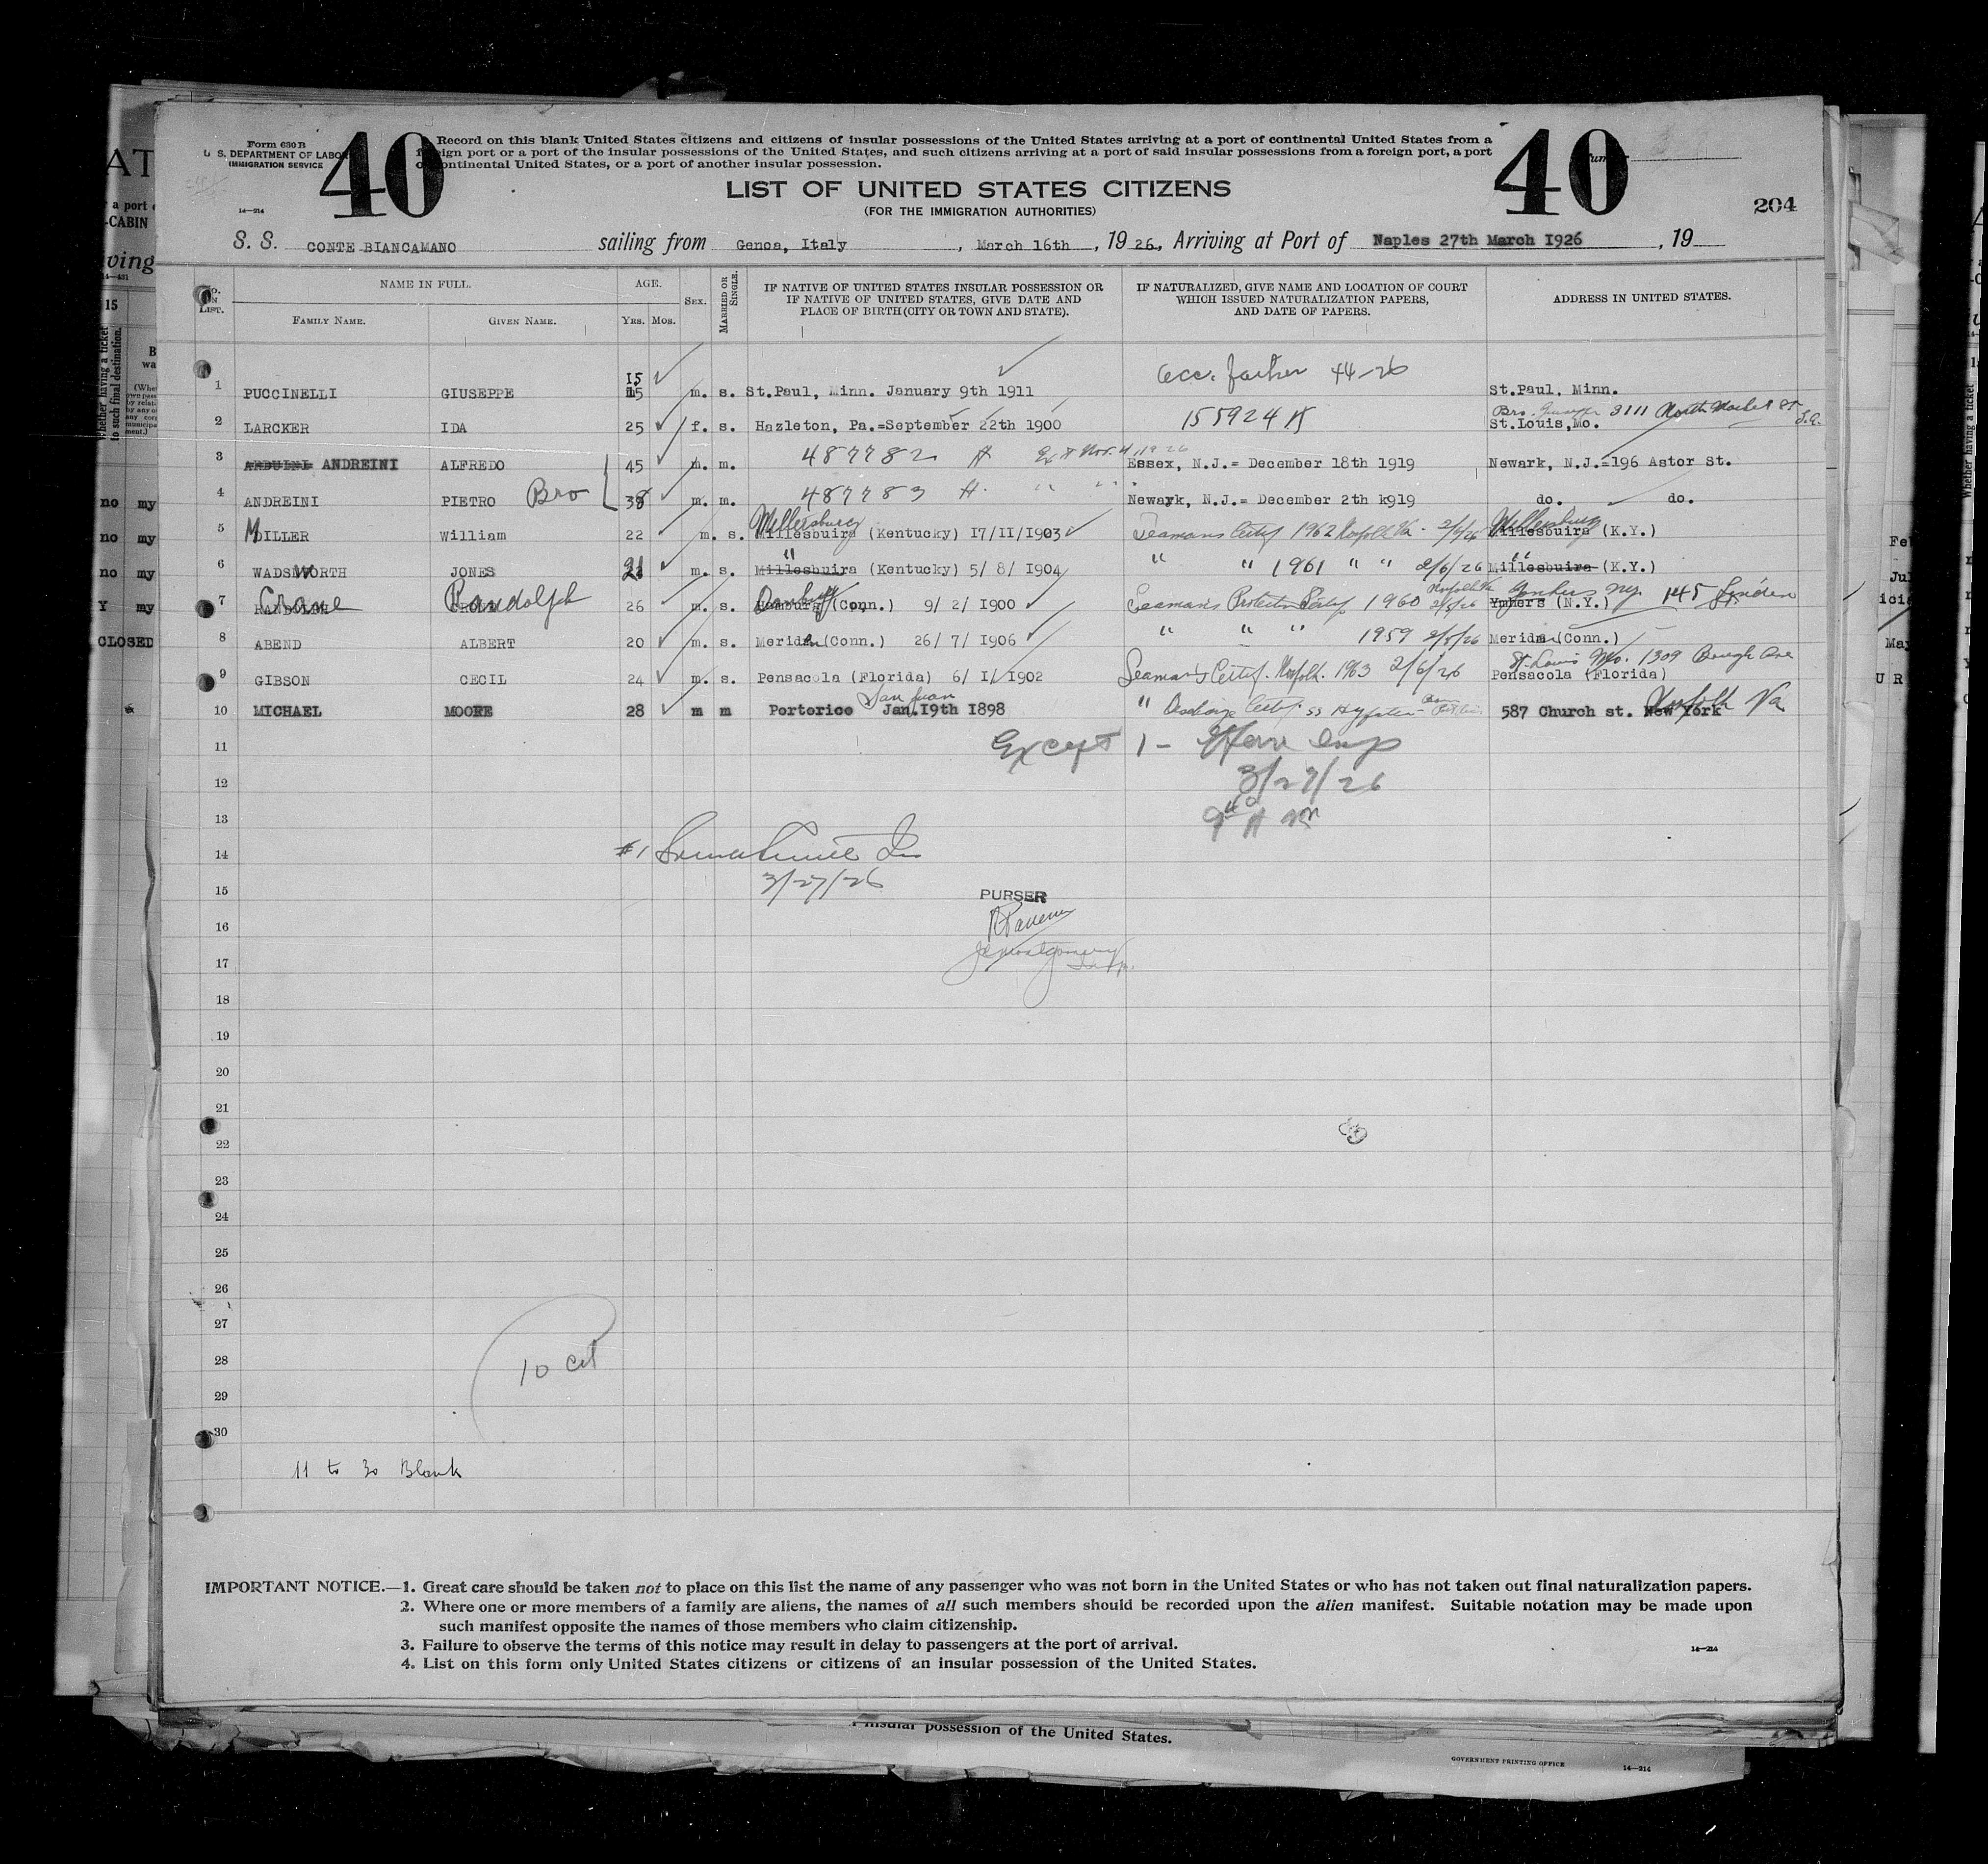 Form 630 B
U. S. DEPARTMENT OF LABOR
IMMIGRATION SERVICE
14—214
40
Record on this blank United States citizens and citizens of insular possessions of the United States arriving at a port of continental United States from a
foreign port or a port of the insular possessions of the United States, and such citizens arriving at a port of said insular possessions from a foreign port, a port
continental United States, or a port of another insular possession.
40
LIST OF UNITED STATES CITIZENS
(FOR THE IMMIGRATION AUTHORITIES)
204
S. S. CONTE BIANCAMANO sailing from Genoa, Italy , March 16th , 19 26, Arriving at Port of Naples 27th March I926 , 19
No. ON LIST.
NAME IN FULL.
FAMILY NAME. GIVEN NAME.
AGE.
YRS. MOS.
SEX.
MARRIED OR SINGLE.
IF NATIVE OF UNITED STATES INSULAR POSSESSION OR
IF NATIVE OF UNITED STATES, GIVE DATE AND
PLACE OF BIRTH (CITY OR TOWN AND STATE).
IF NATURALIZED, GIVE NAME AND LOCATION OF COURT
WHICH ISSUED NATURALIZATION PAPERS,
AND DATE OF PAPERS.
ADDRESS IN UNITED STATES.
15 acc. father 44-26
1 PUCCINELLI GIUSEPPE m. s. St.Paul, Minn. January 9th 1911 St.Paul, Minn.
155924 3111 North Market St
2 LARCKER IDA 25 f. s. Hazleton, Pa.=September 22th 1900 St.Louis,Mo.
487782 A Nov. 4, 1926
3 ARDUINI ANDREINI ALFREDO 45 m. m. Essex, N.J.= December 18th 1919 Newark, N.J.=196 Astor St.
487783 A. " "
4 ANDREINI PIETRO Bro 38 m. m. Newayk, N.J.= December 2th k919 do. do.
Millersburg Millersburg
5 MILLER William 22 m. s. Millesbuira (Kentucky) I7/II/I903 Seamans Certif 1962 Norfolk Va. 2/6/26 Millesbuira (K.Y.)
6 WADSWORTH JONES 21 m. s. " Millesbuira (Kentucky) 5/ 8/ I904 " " 1961 " " 2/6/26 " Millesbuira (K.Y.)
7 Crane Randolph 26 m. s. Danbury (Conn.) 9/ 2/ I900 Seaman's Protection Certif 1960 Norfolk Va 2/5/26 Yonkers NY. 145 Linden
Ymhers (N.Y.)
8 ABEND ALBERT 20 m. s. Meriden (Conn.) 26/ 7/ I906 " " " 1959 2/5/26 Meriden (Conn.)
St. Louis Mo. 1309
9 GIBSON CECIL 24 m. s. Pensacola (Florida) 6/ I/ I902 Seaman's Certif. Norfolk. 1963 2/6/26 Pensacola (Florida)
San Juan
10 MICHAEL MOORE 28 m m Portorico Jan.I9th I898 " Discharge Certif. SS 587 Church st. New York Norfolk Va
11 Except 1 -
12 3/27/26
13
14 #1
3/27/26
15 PURSER
16
17 Montgomery
18
19
20
21
22
23
24
25
26
27
28 10
29
30
11 to 30 Blank
IMPORTANT NOTICE.—1. Great care should be taken not to place on this list the name of any passenger who was not born in the United States or who has not taken out final naturalization papers.
2. Where one or more members of a family are aliens, the names of all such members should be recorded upon the alien manifest. Suitable notation may be made upon
such manifest opposite the names of those members who claim citizenship.
3. Failure to observe the terms of this notice may result in delay to passengers at the port of arrival.
4. List on this form only United States citizens or citizens of an insular possession of the United States.
14—214
insular possession of the United States.
GOVERNMENT PRINTING OFFICE 14—214
AT
a port
-CABIN
ving
15
Whether having a ticket
to such final destination.
no my
no my
no my
Y my
CLOSED
May
U R
Whether having a ticket